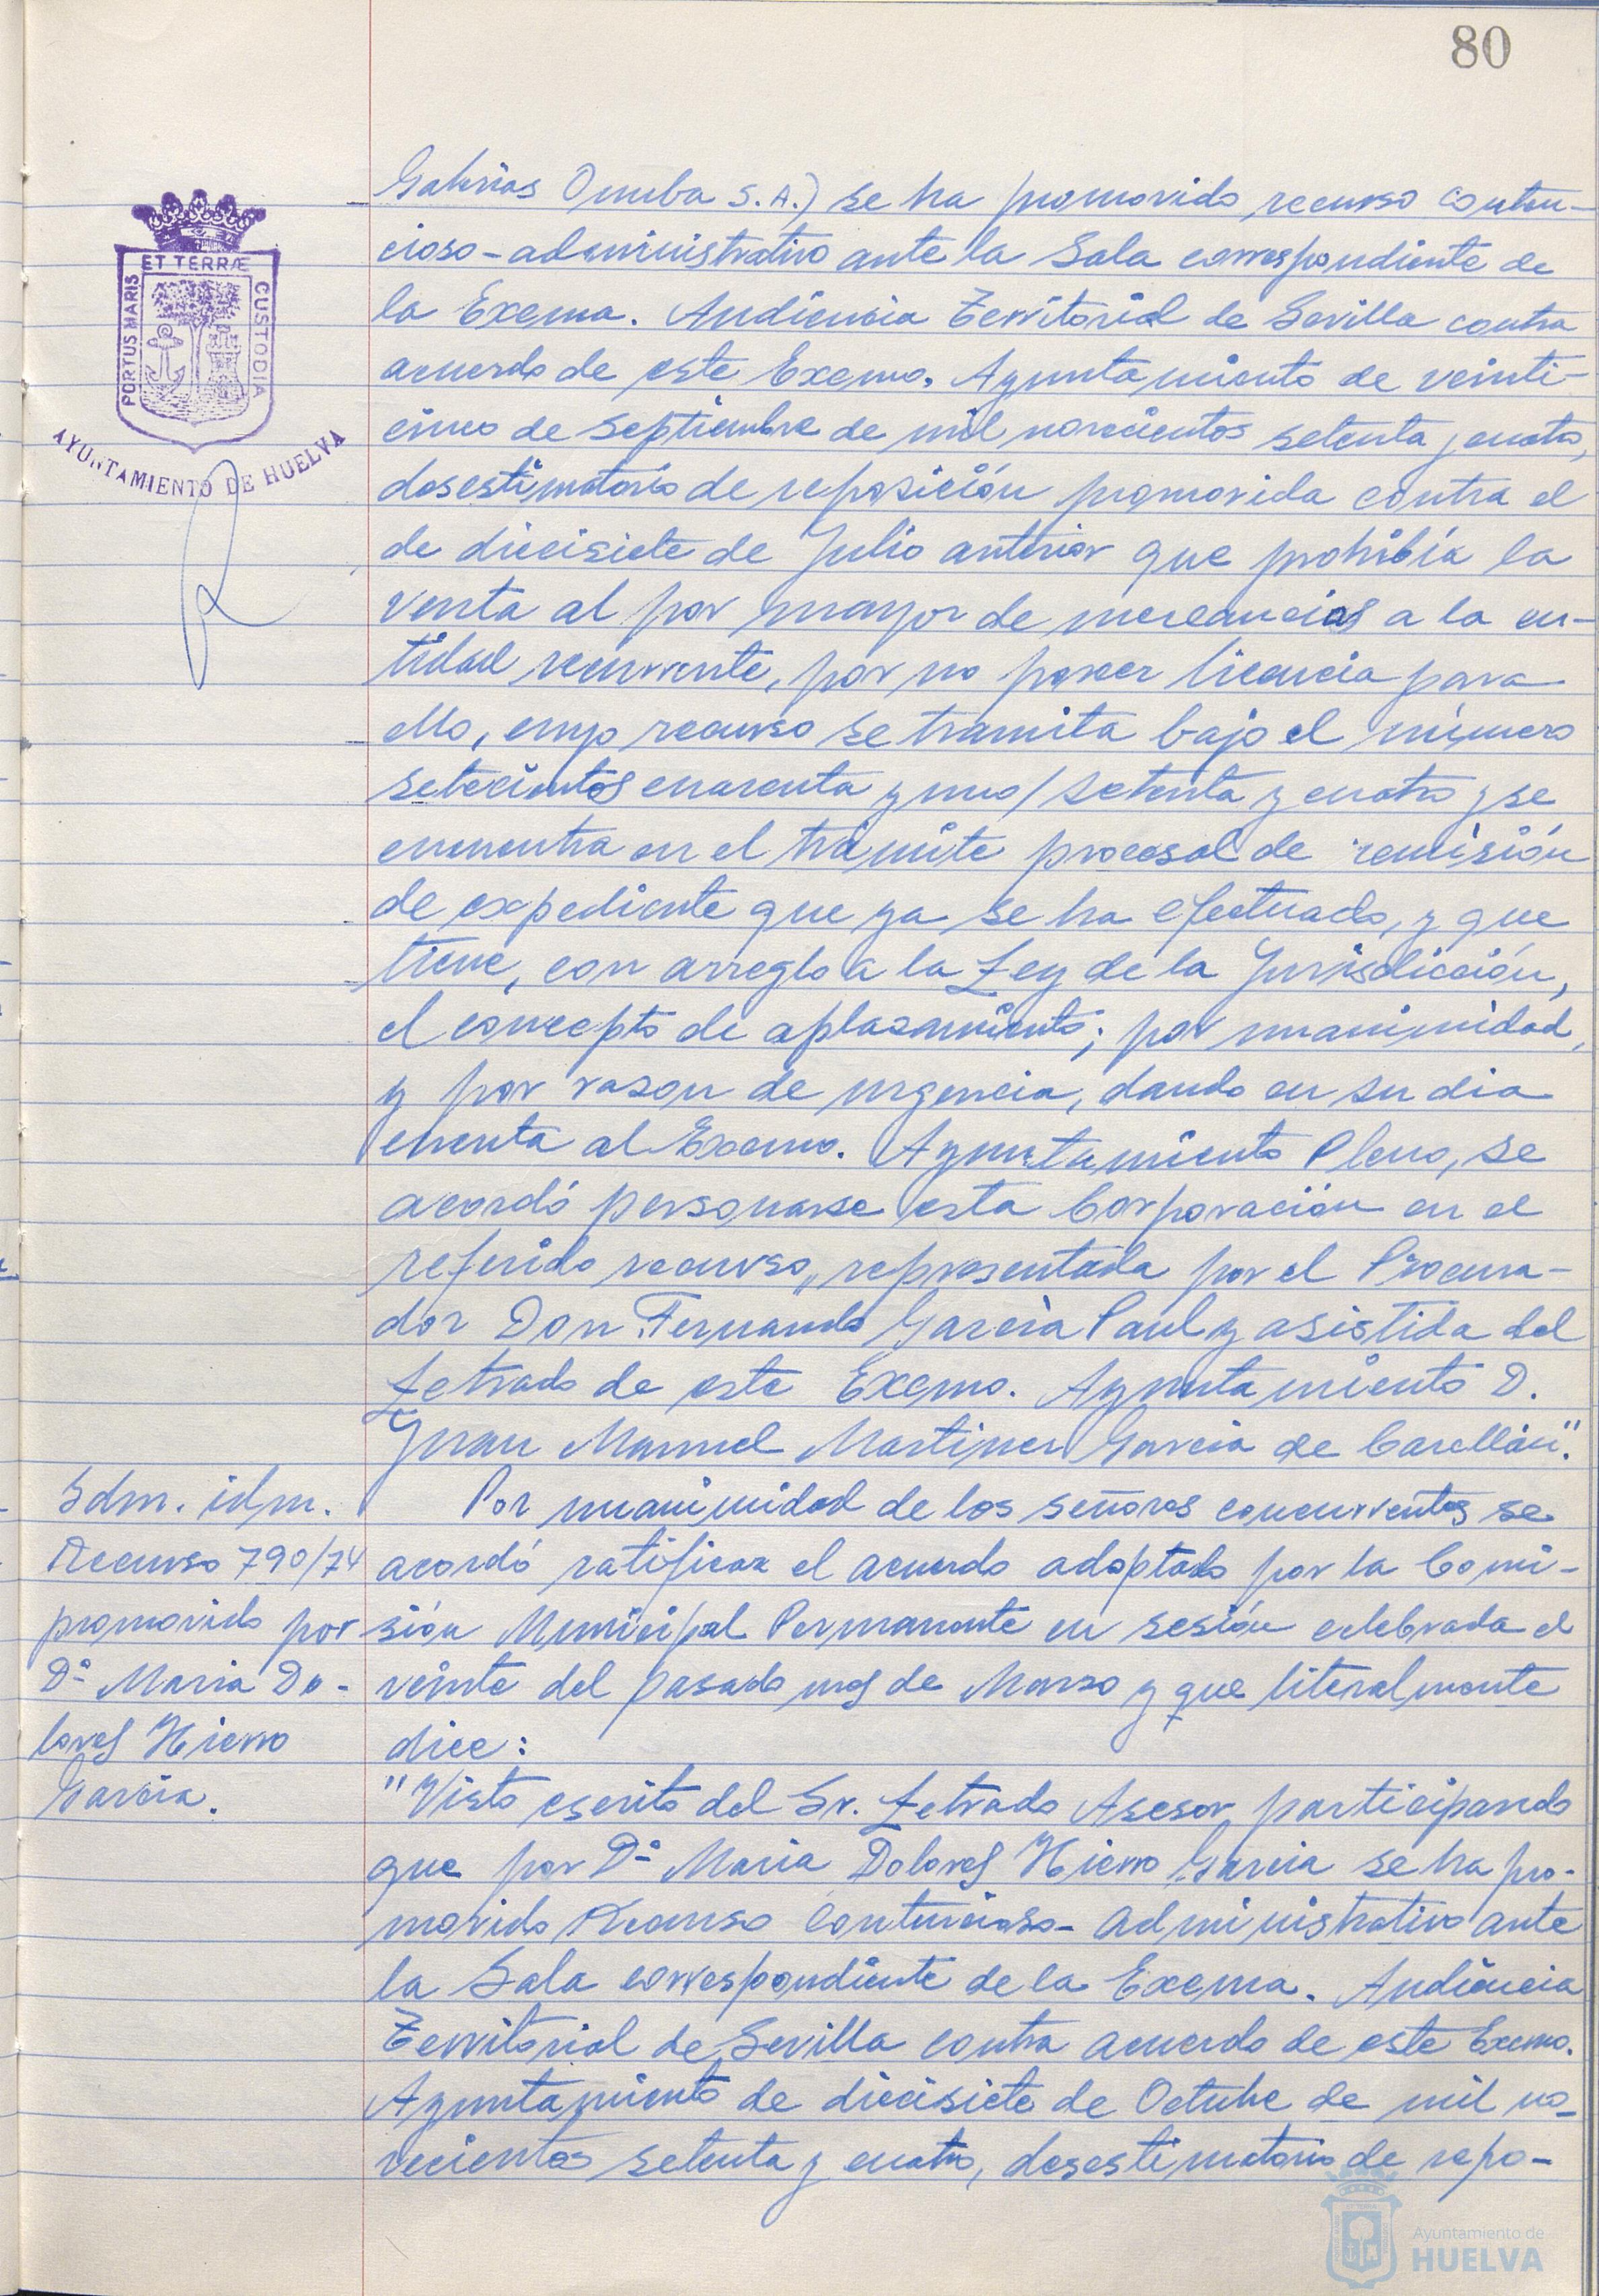 80
ET TERRÆ
PORTUS MARIS
CUSTODIA
AYUNTAMIENTO DE HUELVA
Galerias Onuba S.A.) se ha promovido recurso conten-
cioso-administrativo ante la Sala correspondiente de
la Excma. Audiencia Territorial de Sevilla contra
acuerdo de este Excmo. Ayuntamiento de veinti-
cinco de Septiembre de mil novecientos setenta y cuatro,
desestimatorio de reposición promovida contra el
de diecisiete de Julio anterior que prohibía la
venta al por mayor de mercancias a la en-
tidad recurrente, por no poseer licencia para
ello, cuyo recurso se tramita bajo el número
setecientos cuarenta y uno/setenta y cuatro y se
encuentra en el trámite procesal de remisión
de expediente que ya se ha efectuado, y que
tiene, con arreglo a la Ley de la Jurisdicción,
el concepto de aplazamiento; por unanimidad,
y por razon de urgencia, dando en su dia
cuenta al Excmo. Ayuntamiento Pleno, se
acordó personarse esta Corporación en el
referido recurso, representada por el Procura-
dor Don Fernando García Paul y asistida del
Letrado de este Excmo. Ayuntamiento D.
Juan Manuel Martinez Garcia de Carellán".
Sdm. idm.
Recurso 790/74
promovido por
Dª Maria Do-
lores Hierro
García.
Por unanimidad de los señores concurrentes se
acordó ratificar el acuerdo adoptado por la Comi-
sión Municipal Permanente en sesión celebrada el
veinte del pasado mes de Marzo y que literalmente
dice:
"Visto escrito del Sr. Letrado Asesor participando
que por Dª Maria Dolores Hierro Garcia se ha pro-
movido Recurso Contencioso-administrativo ante
la Sala correspondiente de la Excma. Audiencia
Territorial de Sevilla contra acuerdo de este Excmo.
Ayuntamiento de diecisiete de Octubre de mil no-
vecientos setenta y cuatro, desestimatorio de repo-
Ayuntamiento de
HUELVA